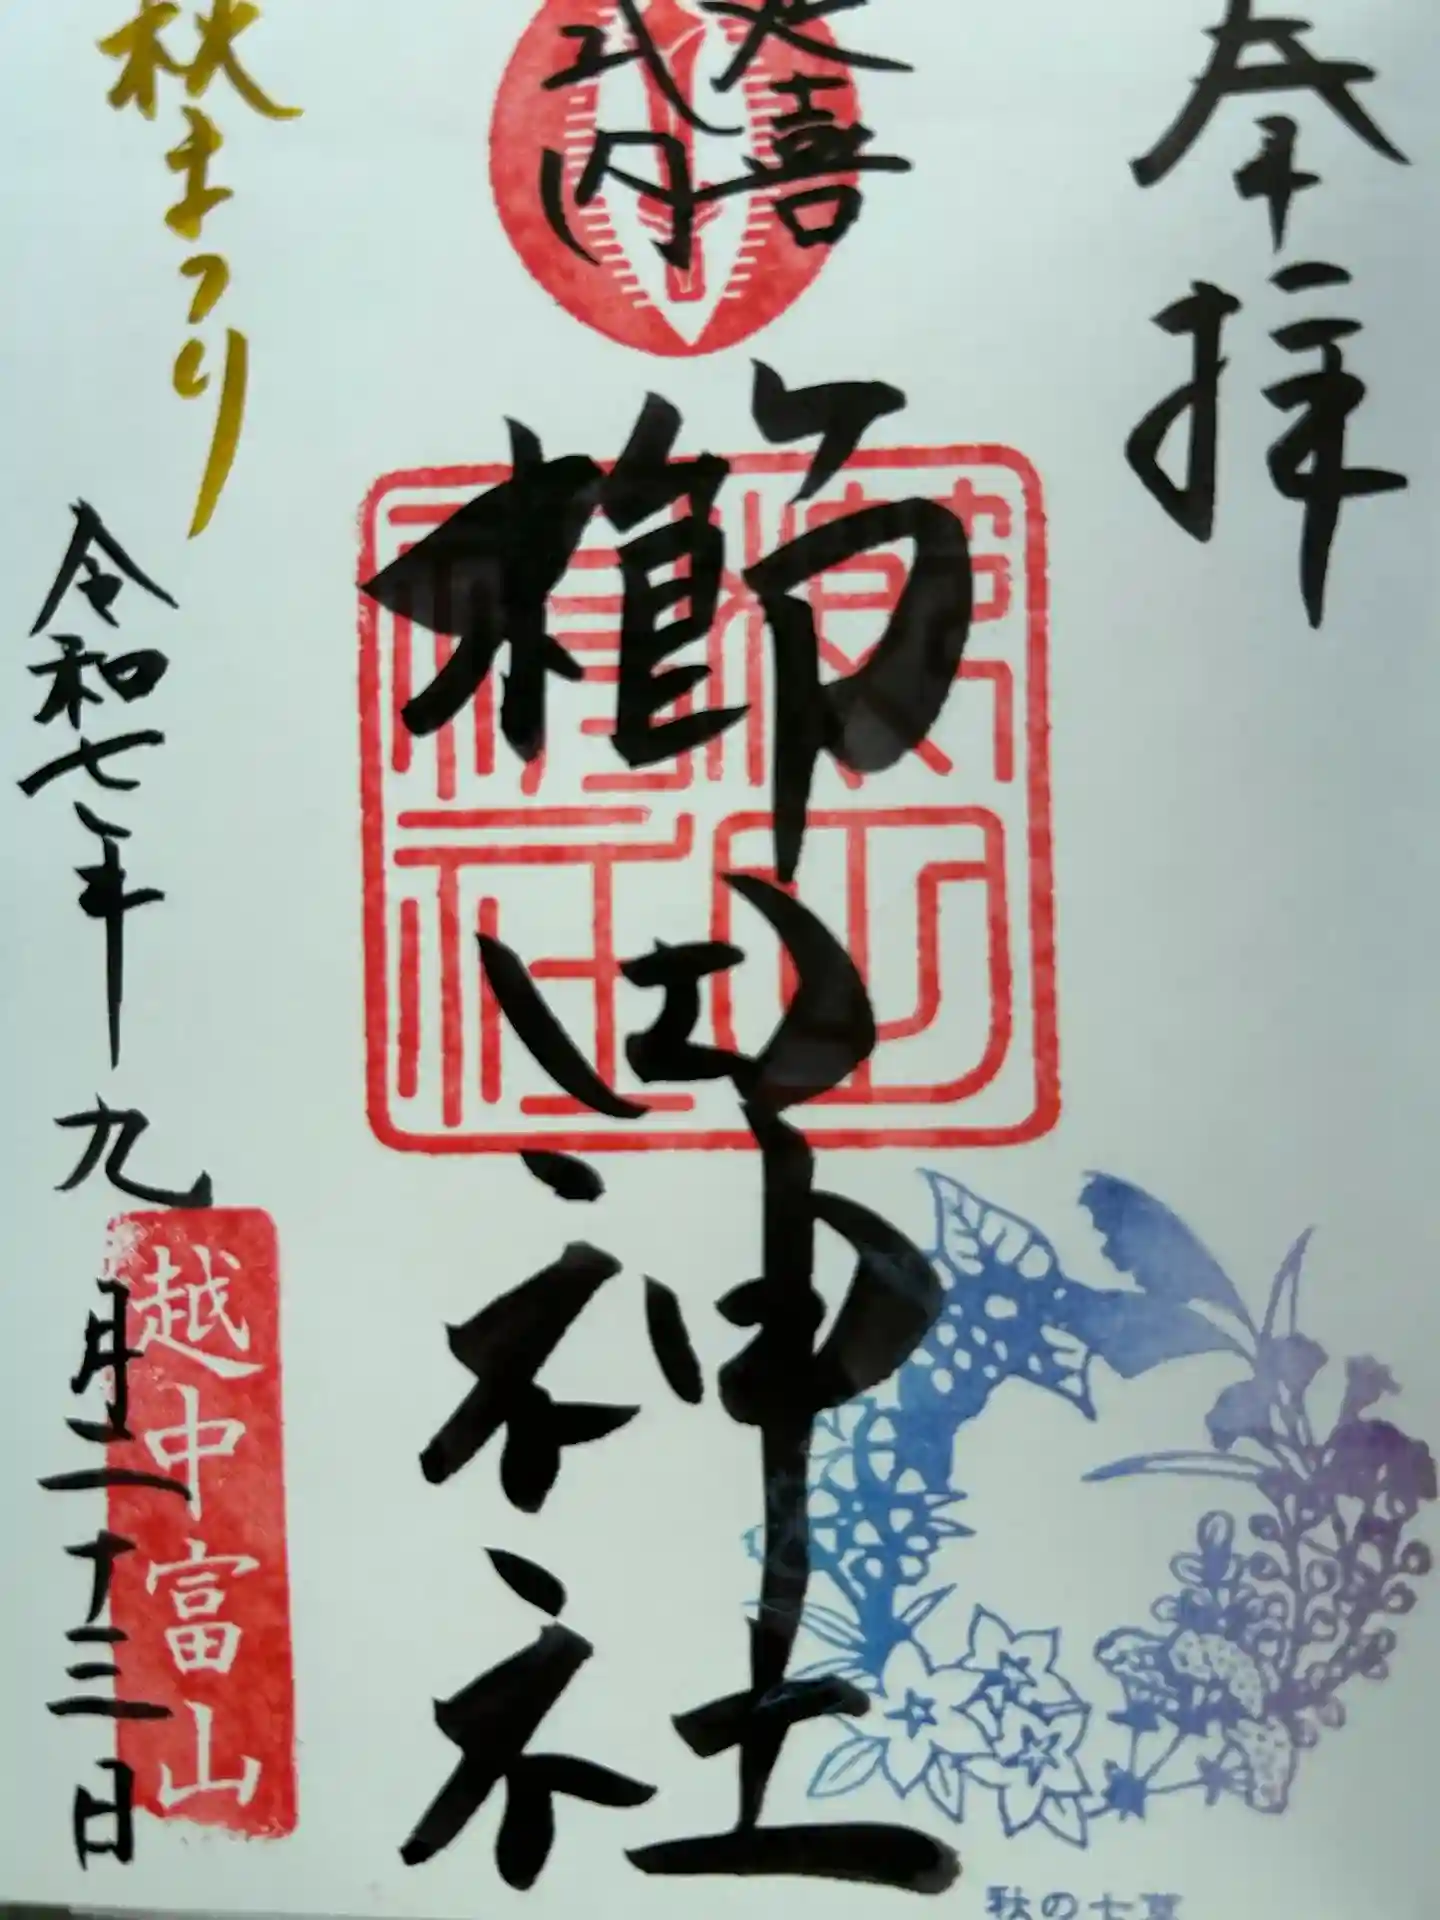 奉拝
延喜
式内
櫛田神社
秋まつり
令和七年九月二十三日
越中富山
秋の七草